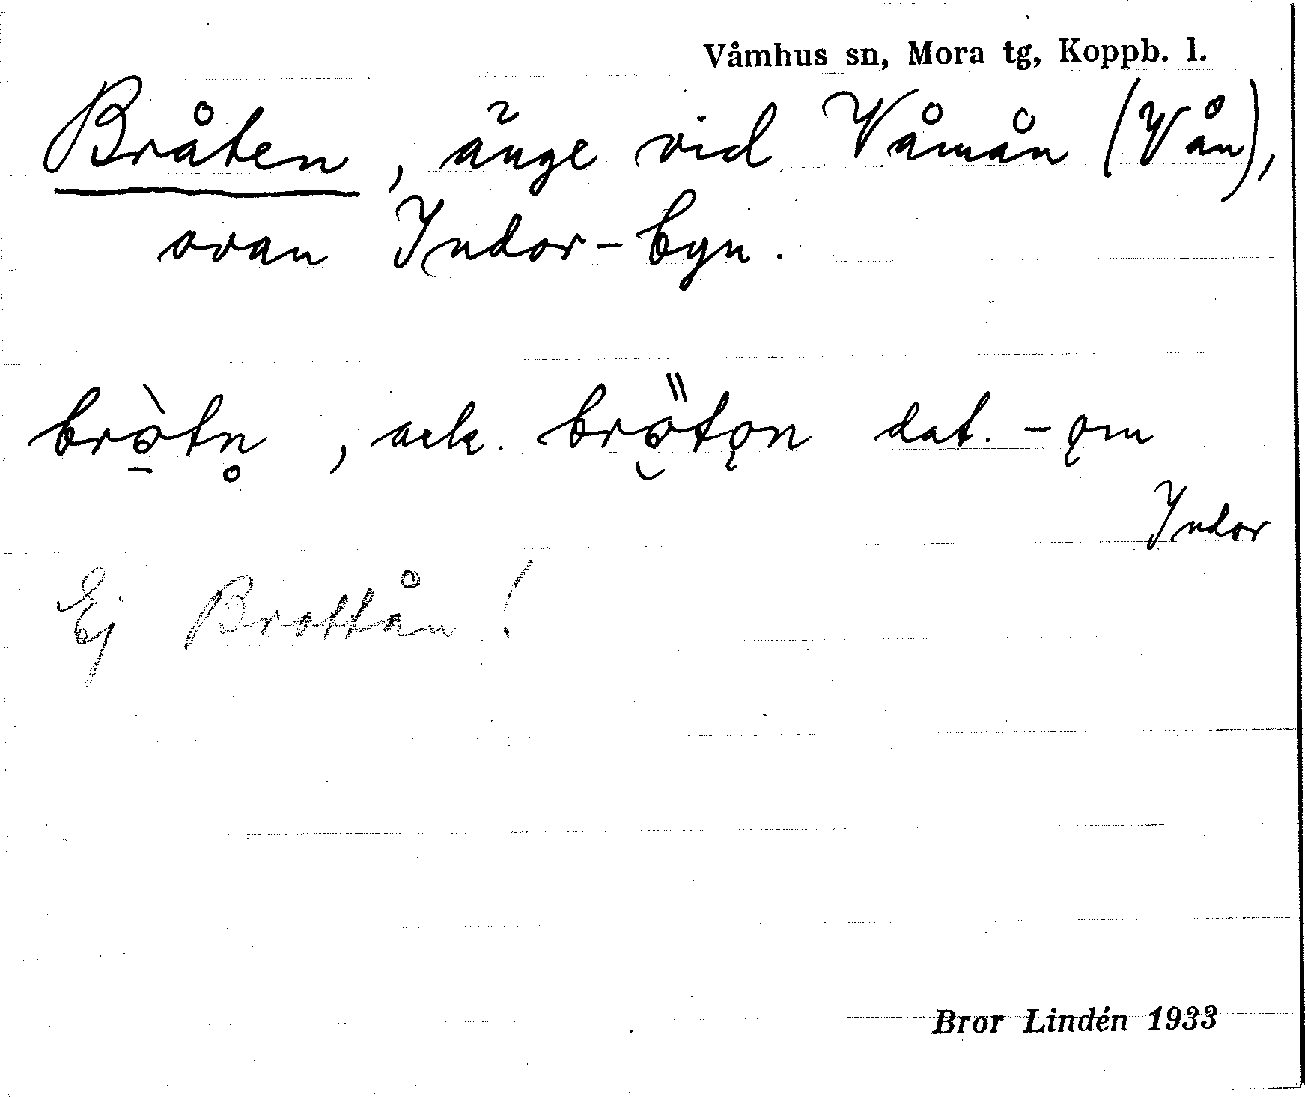 Våmhus sn, Mora tg, Koppb. l.
Bråten, änge vid Våmån (Vån),
ovan Indor-byn.
brò̱tn̥, ack. brö̮tǫn dat. -ǫm
Indor
Ej Brottån!
Bror Lindén 1933